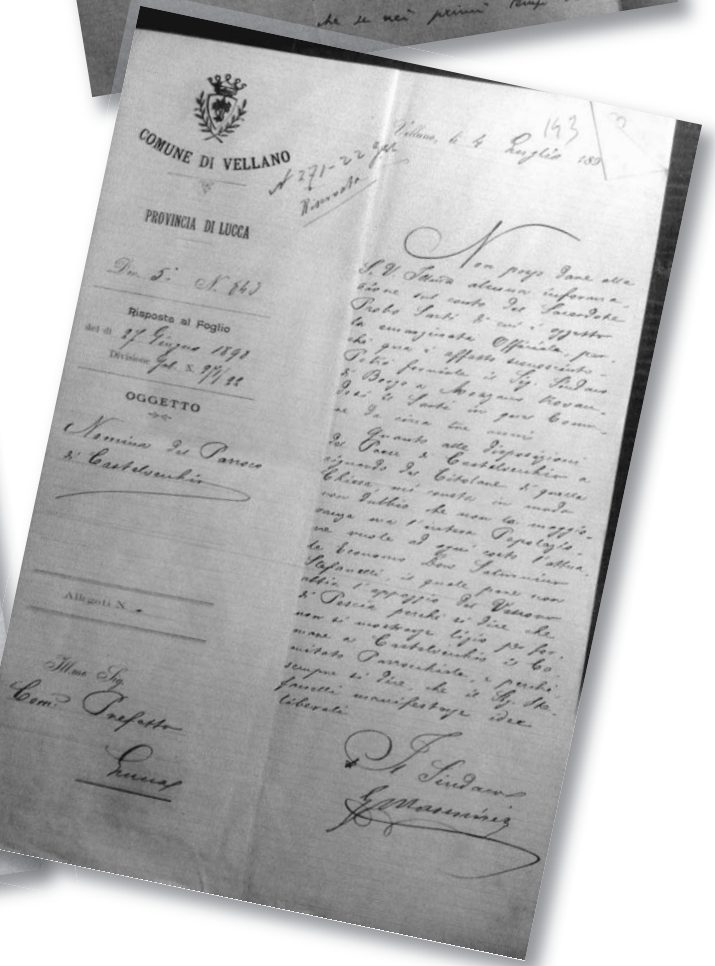 che se nei primi tempi
143
COMUNE DI VELLANO
PROVINCIA DI LUCCA
Vellano, li 4 Luglio 189
N 271-22 Gab
Riservata
Div. 5ª N. 843
Risposta al Foglio
del dì 27 Giugno 1898
Divisione Gab. N. 271/22
OGGETTO
Nomina del Parroco
di Castelvecchio
Allegati N.
Illmo Sig.
Com. Prefetto
Lucca
Non posso dare alla
S. V. Illma alcuna informa-
zione sul conto del Sacerdote
Probo Sarti di cui è oggetto
la emarginata Officiale, per-
chè qua è affatto sconosciuto.
Potrà fornirle il Sig. Sindaco
di Borgo a Mozzano trovan-
dosi il Sarti in quel Comu-
ne da circa tre anni
Quanto alle disposizioni
del Paese di Castelvecchio a
riguardo del Titolare di quella
Chiesa mi consta in modo
non dubbio che non la maggio-
ranza ma l'intera Popolazio-
ne vuole ad ogni costo l'attua-
le Economo Don
Stefanelli, il quale pare non
abbia l'appoggio del Vescovo
di Pescia perchè si dice che
non si mostrasse ligio per for-
mare a Castelvecchio il Co-
mitato Parrocchiale, e perchè
sempre si dice, che il Sig. Ste-
fanelli manifestasse idee
liberali
Il Sindaco